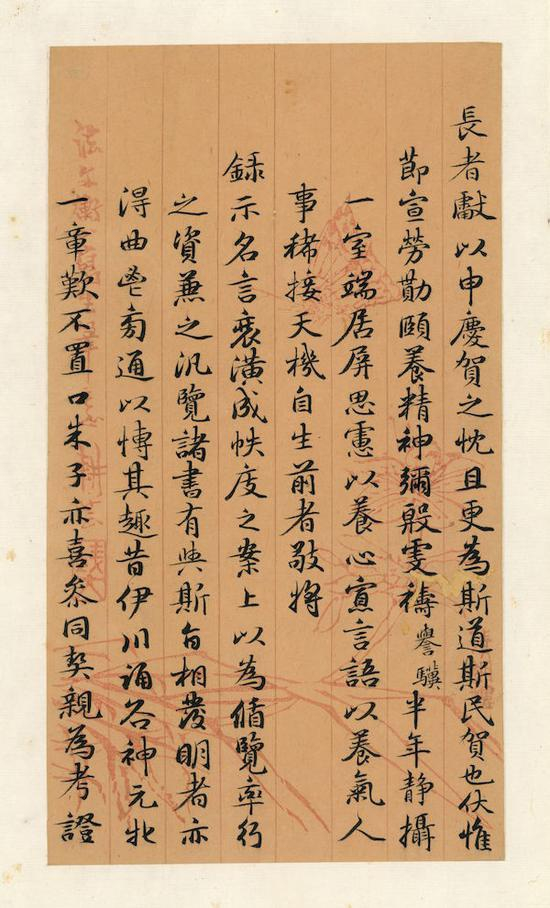 長者獻以申慶賀之忱且更為斯道斯民賀也伏惟
節宣勞勩頤養精神彌殷雯禱譽驥半年靜攝
一室端居屏思慮以養心寡言語以養氣人
事稀接天機自生前者敬將
錄示名言裝潢成帙庋之案上以為循覽率行
之資兼之汎覽諸書有與斯旨相發明者亦
得曲鬯旁通以博其趣昔伊川誦谷神元牝
一章歎不置口朱子亦喜參同契親為考證